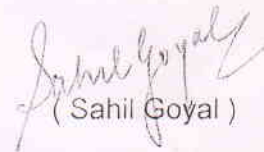 Sahil Goyal
( Sahil Goyal )